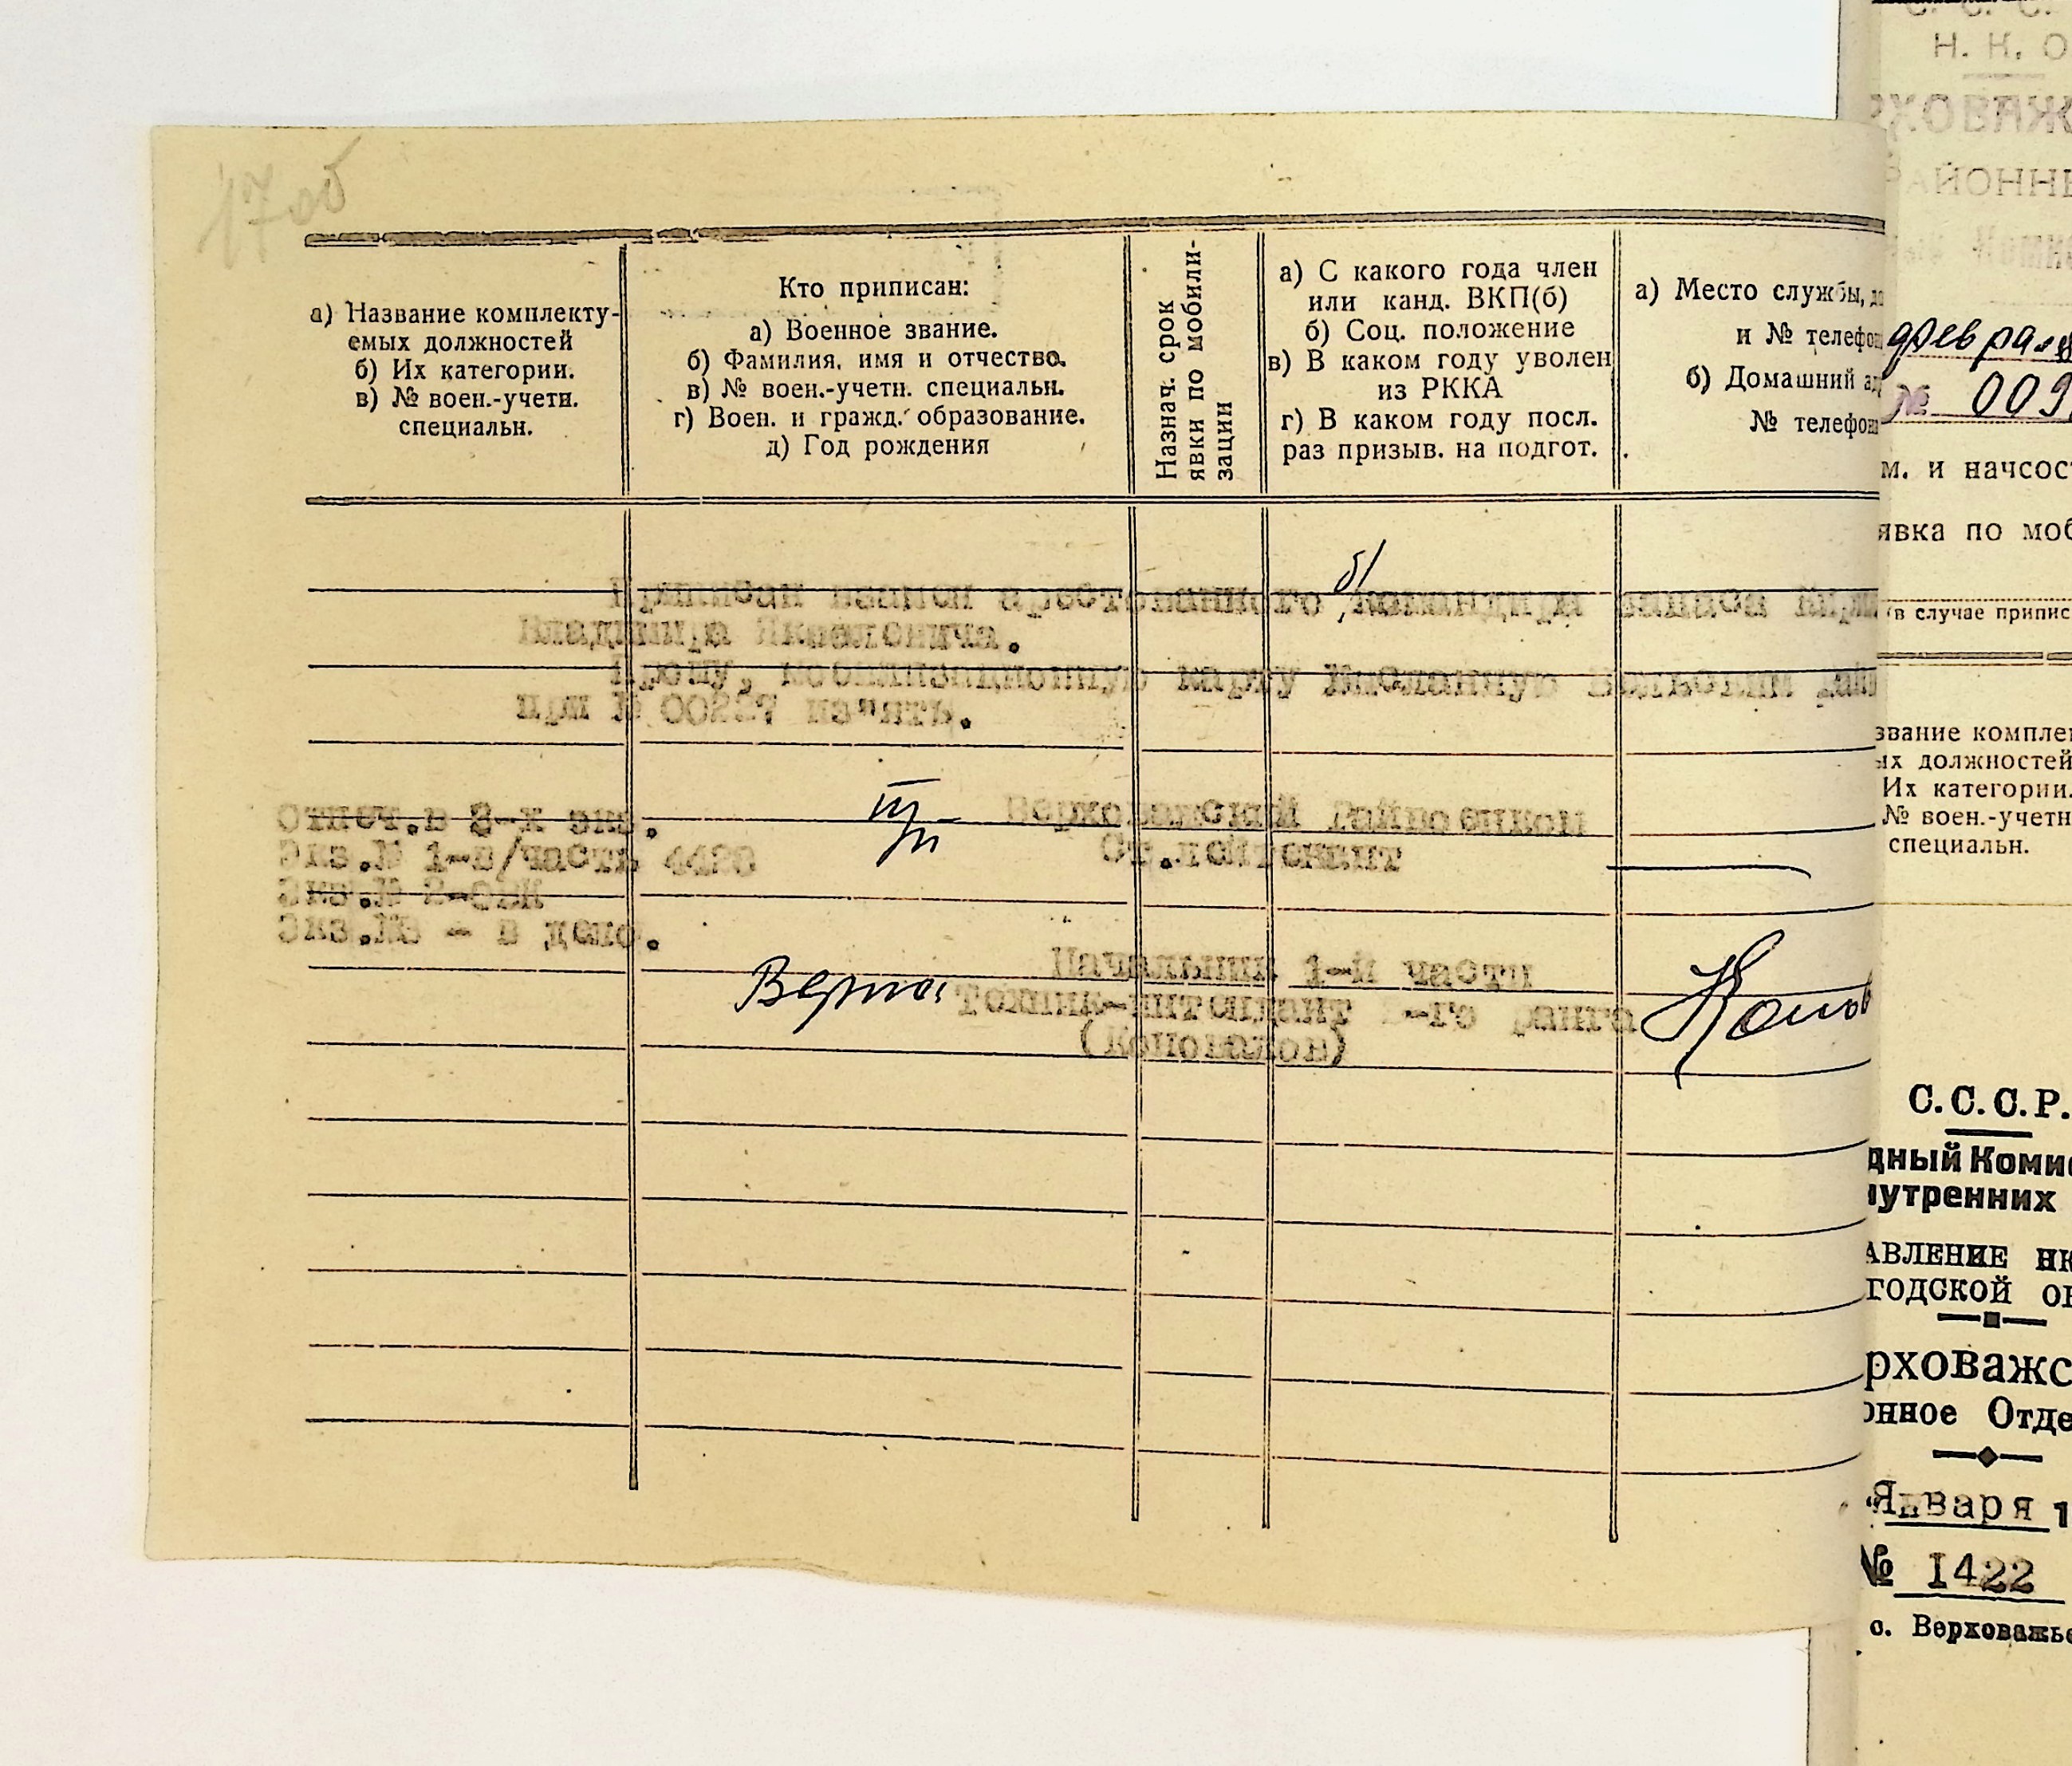 17 об
а) Название комплекту-
емых должностей
б) Их категории.
в) № воен.-учетн.
специальн.
Кто приписан:
а) Военное звание.
б) Фамилия, имя и отчество.
в) № воен.-учетн. специальн.
г) Воен. и гражд. образование.
д) Год рождения
Назнач. срок
явки по мобили-
зации
а) С какого года член
или канд. ВКП(б)
б) Соц. положение
в) В каком году уволен
из РККА
г) В каком году посл.
раз призыв. на подгот.
а) Место службы,
и № телефон
б) Домашний ад
№ телефон
б/
Приписан взамен арестованного командира запаса
Владимира
Прошу, мобилизационную карту
при № 00227 из"ять.
Отпеч.в 3-х экз.
Экз.№ 1-в/часть 4420
Экз.№ 2-
Экз.№3 - в дело.
п/п
Верховажский Райвоенком
Ст.лейтенант
Начальник 1-й части
Техник-интендант -го ранга
Верно:
С. С. С.
Н. К. О
РХОВАЖ
РАЙОННЫ
феврал
№ 009
м. и начсост
явка по моб
(в случае припис
звание комплек
ых должностей
Их категории.
№ воен.-учетн
специальн.
С.С.С.Р.
дный Комис
нутренних
АВЛЕНИЕ НК
ГОДСКОЙ ОБ
рховажс
онное Отде
Января 1
№ 1422
с. Верховажье